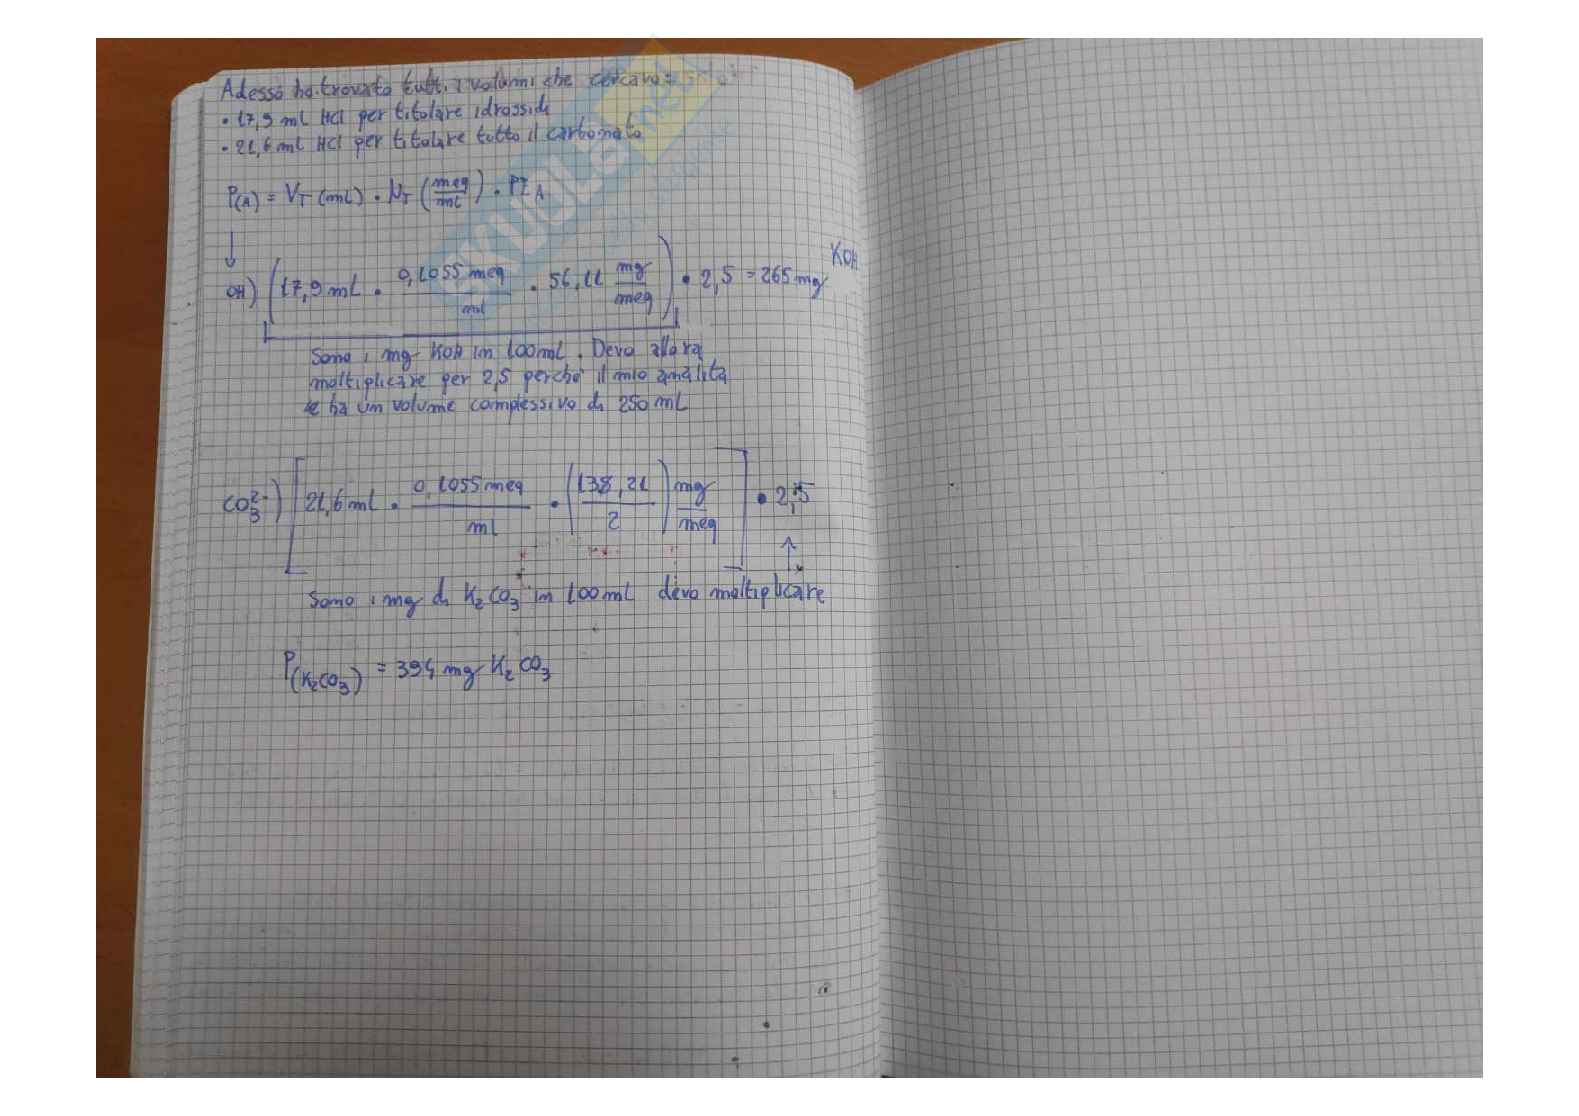 Adesso ho trovato tutti i volumi che cercavo:
• 17,9 ml HCl per titolare idrossidi
• 21,6 ml HCl per titolare tutto il carbonato
P(A) = VT (ml) • NT (meq/ml) • PE A
↓
OH) (17,9 ml • 0,1055 meq/ml • 56,11 mg/meq) • 2,5 = 265 mg KOH
Sono i mg KOH in 100 ml. Devo allora
moltiplicare per 2,5 perché il mio analita
ha un volume complessivo di 250 ml
CO3²⁻) [21,6 ml • 0,1055 meq/ml • (138,21/2) mg/meq] • 2,5
↑
Sono i mg di K2CO3 in 100 ml devo moltiplicare
P(K2CO3) = 394 mg K2CO3
SKUOLA.net